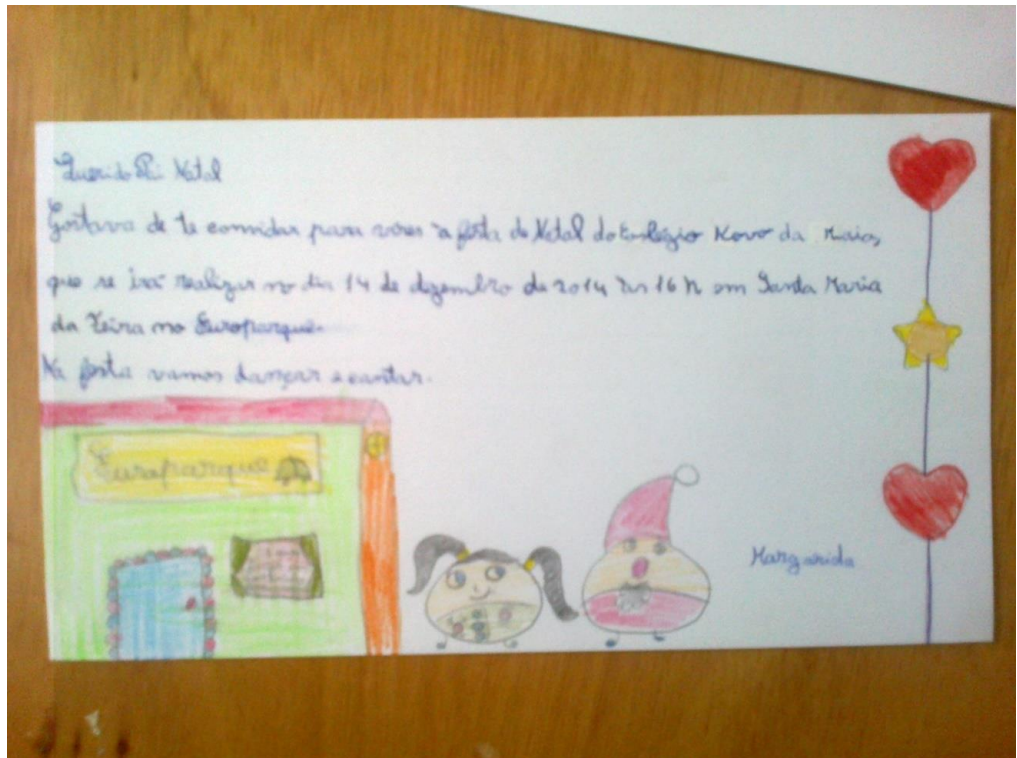 Querido Pai Natal
Gostava de te convidar para vires à festa de Natal do Colégio Novo da Maia,
que se irá realizar no dia 14 de dezembro de 2014 às 16 h em Santa Maria
da Feira no Europarque.
Na festa vamos dançar e cantar.
Europarque
Margarida